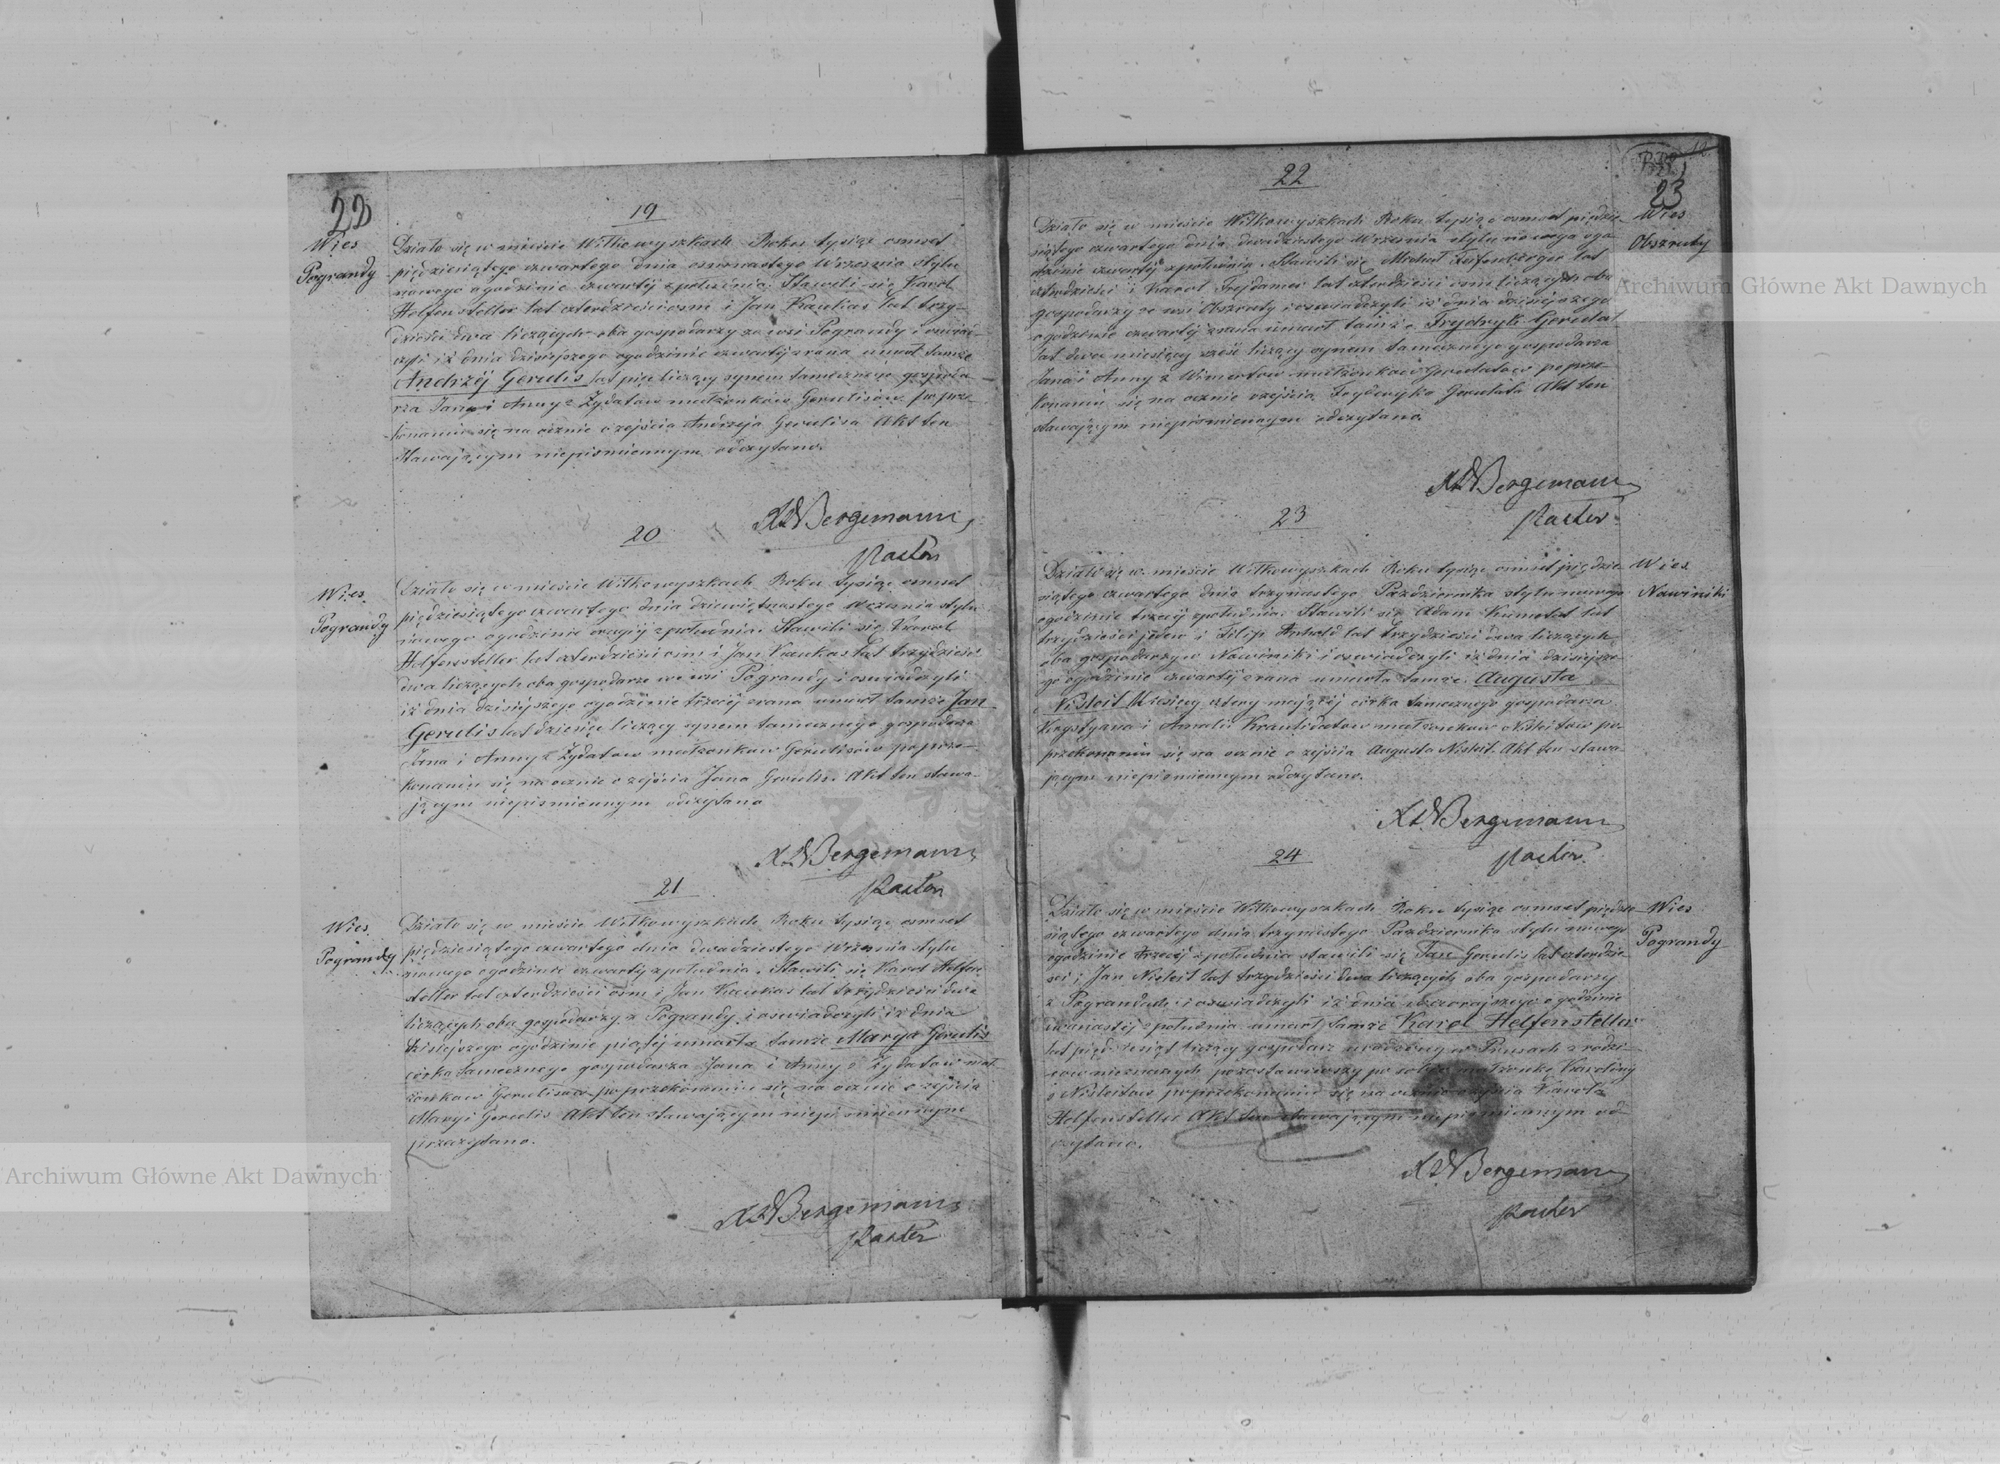 22
19
Wieś
Pograndy
Działo się w mieście Wiłkowyszkach Roku tysiąc osmset
pięćdziesiątego czwartego dnia osmnastego Września stylu
nowego ogodzinie czwartéj zpołudnia. Stawili się Karol
Helfensteller lat czterdzieści osm i Jan Kaukas lat trzy-
dzieści dwa liczących oba gospodarzy ze wsi Pograndy i oswiad-
czyli iż dnia dzisiejszego ogodzinie czwartéj zrana umarł tamże
Andrzéj Gerulis lat pięć liczący synem tamecznego gospoda-
rza Jana i Anny z Zydatów małżonków Gerulisów. po prze-
konaniu się na ocznie o zejściu Andrzeja Gerulisa Akt ten
Stawającym niepismiennym odczytano.
KLBergemann
Pastor
20
Wieś
Pograndy
Działo się w mieście Wiłkowyszkach Roku tysiąc osmset
pięćdziesiątego czwartego dnia dziewiętnastego Września stylu
nowego ogodzinie drugiéj zpołudnia. Stawili się Karol
Helfensteller lat czterdzieści osm i Jan Kaukas lat trzydzieści
dwa liczących oba gospodarze we wsi Pograndy i oswiadczyli
iż dnia dzisiejszego ogodzinie trzeciéj zrana umarł tamże Jan
Gerulis lat dziesięć liczący synem tamecznego gospodarza
Jana i Anny z Zydatów małżonków Gerulisów po prze-
konaniu się na ocznie o zejściu Jana Gerulis Akt ten stawa-
jącym niepismiennym odczytano
KLBergemann
Pastor
21
Wieś
Pograndy
Działo się w mieście Wiłkowyszkach Roku tysiąc osmset
pięćdziesiątego czwartego dnia dwudziestego Września stylu
nowego ogodzinie czwartéj zpołudnia. Stawili się Karol Helfen-
steller lat czterdzieści osm i Jan Kaukas lat trzydzieści dwa
liczących oba gospodarzy z Pograndy i oswiadczyli iż dnia
dzisiejszego ogodzinie piątéj umarła tamże Marya Gerulis
córka tamecznego gospodarza Jana i Anny z Zydatów mał-
żonków Gerulisów po przekonaniu się na ocznie o zejściu
Maryi Gerulis Akt ten stawającym niepismiennym
przeczytano.
KLBergemann
Pastor
22
23
Wieś
Obszruty
Działo się w mieście Wiłkowyszkach Roku tysiąc osmset pięćdzie-
siątego czwartego dnia dwudziestego Września stylu nowego ogo-
dzinie czwartéj zpołudnia. Stawili się lat
czterdzieści i Karol lat czterdzieści osm liczących oba
gospodarzy ze wsi Obszruty i oswiadczyli iż dnia dzisiejszego
ogodzinie czwartéj zrana umarł tamże Frydryk Gerulat
lat dwa miesięcy sześć liczący synem tamecznego gospodarza
Jana i Anny z małżonków Gerulatów po prze-
konaniu się na ocznie o zejściu Fryderyka Gerulata Akt ten
stawającym niepismiennym odczytano.
KLBergemann
Pastor
23
Wieś
Nowiniki
Działo się w mieście Wiłkowyszkach Roku tysiąc osmset pięćdzie-
siątego czwartego dnia trzynastego Października stylu nowego
ogodzinie trzeciéj zpołudnia. Stawili się Adam lat
trzydzieści jeden i Filip Anhold lat trzydzieści dwa liczących
oba gospodarzy w Nowiniki i oswiadczyli iż dnia dzisiejsze-
go ogodzinie czwartéj zrana umarła tamże Augusta
Nikleit Miesięcy cztery mającéj córka tamecznego gospodarza
Krystyana i Amalii małżonków Nikleitów po
przekonaniu się na ocznie o zejściu Augusta Nikleit Akt ten stawa-
jącym niepismiennym odczytano.
KLBergemann
Pastor.
24
Wieś
Pograndy
Działo się w mieście Wiłkowyszkach Roku tysiąc osmset pięćdzie-
siątego czwartego dnia trzynastego Października stylu nowego
ogodzinie trzeciéj zpołudnia stawili się Jan Gerulis lat czterdzie-
sci i Jan Nikleit lat trzydzieści dwa liczących oba gospodarzy
z Pograndach i oswiadczyli iż dnia wczorajszego o godzinie
dwunastéj zpołudnia umarł tamże Karol Helfensteller
lat liczący gospodarz urodzony w Prusach z rodzi-
ców niewiadomych pozostawiwszy po sobie małżonkę Karolinę
z Nikleitów po przekonaniu się na ocznie o zejściu Karola
Helfensteller Akt ten stawającym niepismiennym od-
czytano.
KLBergemann
Pastor
Archiwum Główne Akt Dawnych
Archiwum Główne Akt Dawnych